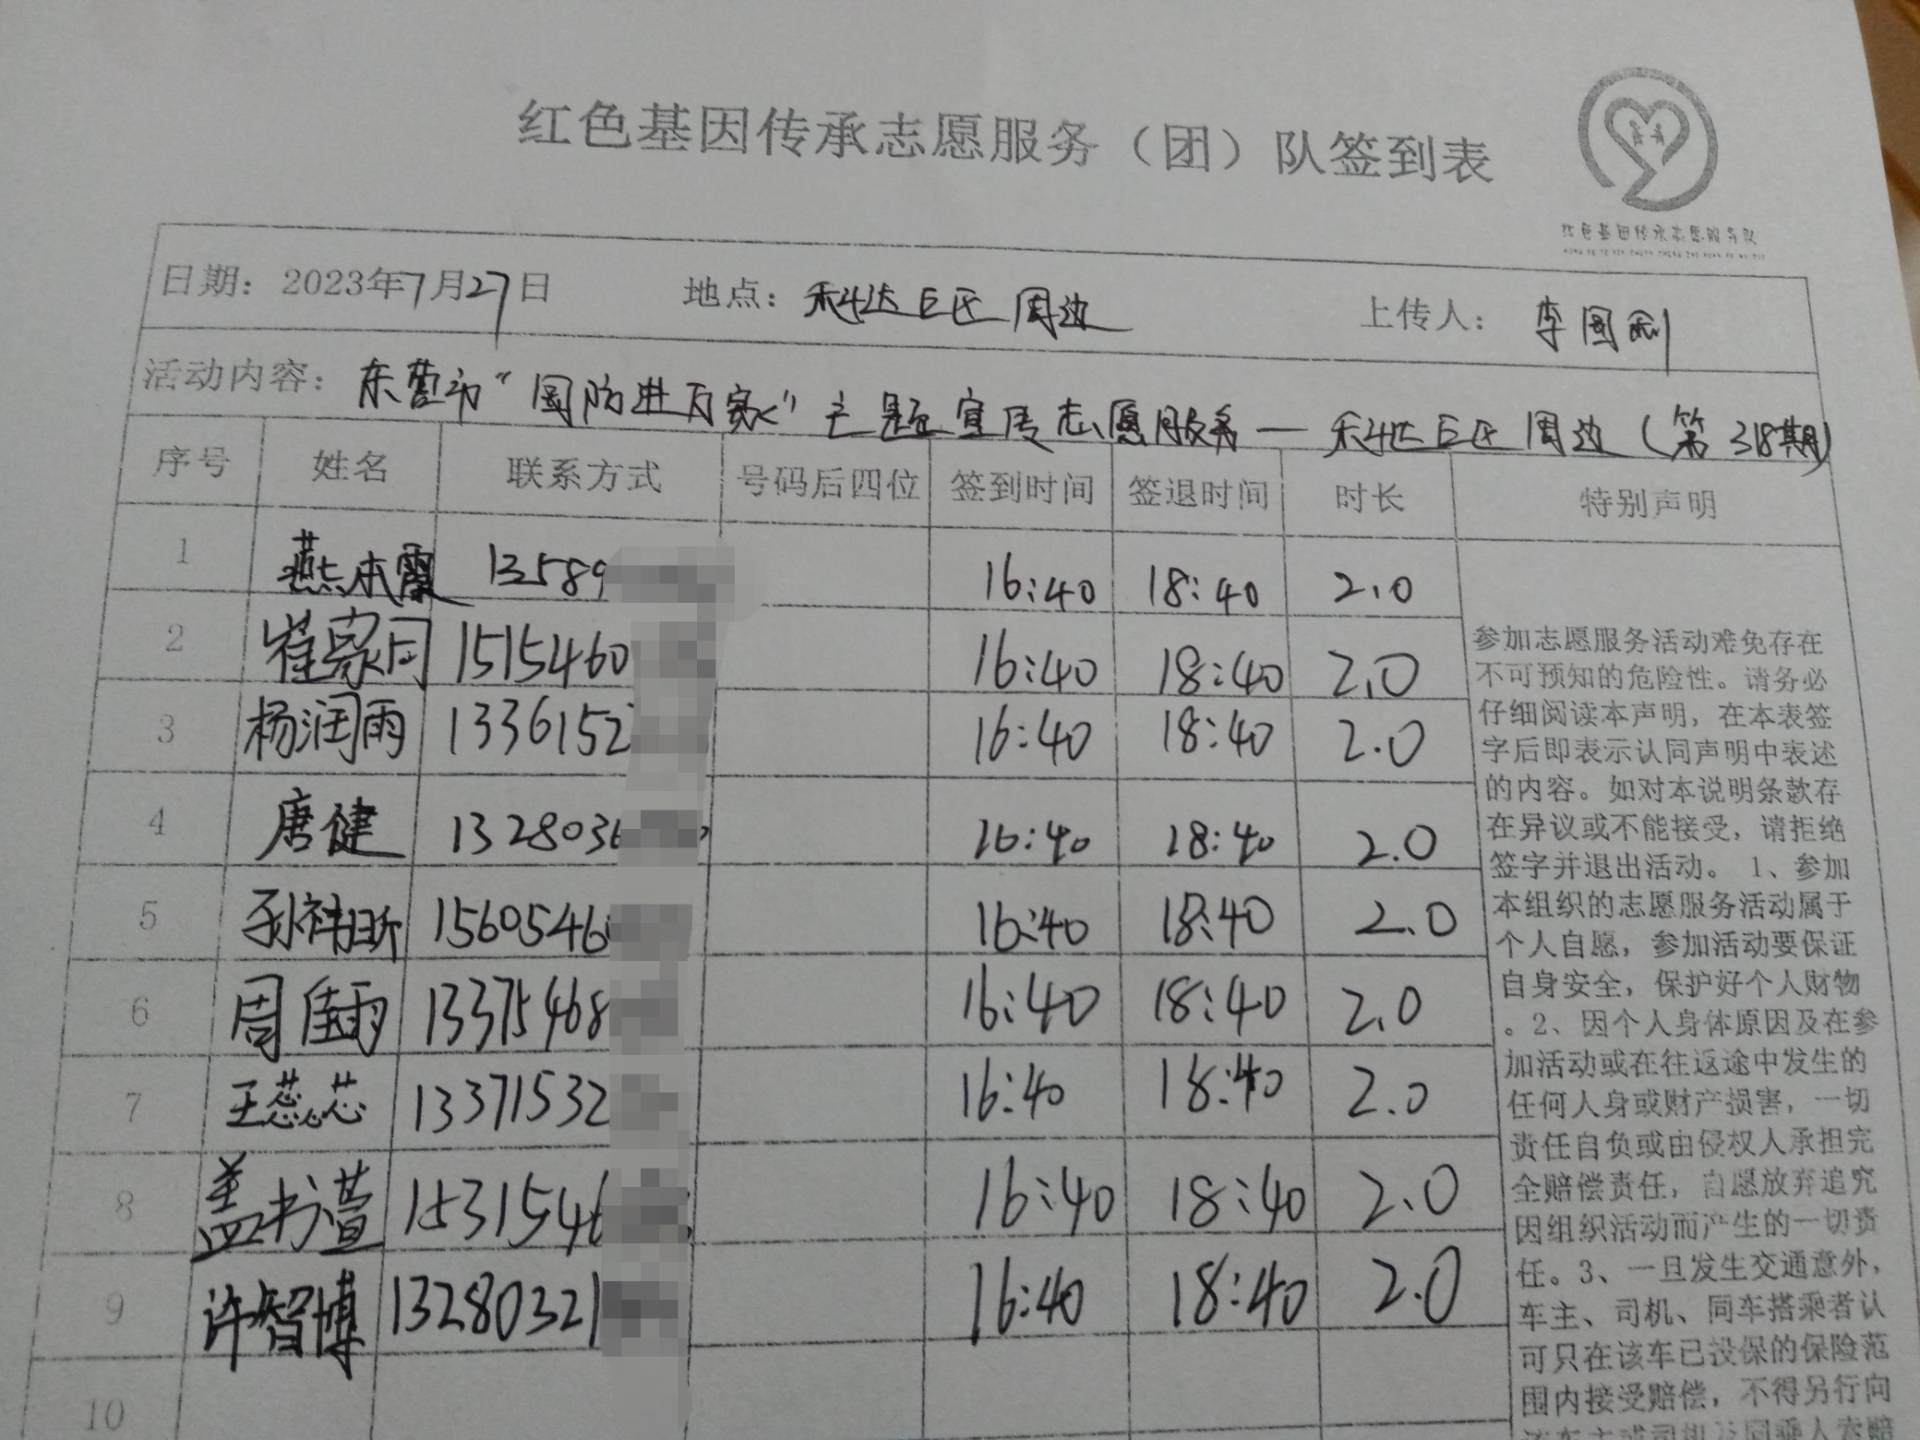 红色基因传承志愿服务（团）队签到表
红色基因传承志愿服务队
日期：2023年7月27日 地点：利达巨区周边 上传人：李国利
活动内容：东营市“国防进万家”主题宣传志愿服务—利达巨区周边（第318期）
序号 姓名 联系方式 号码后四位 签到时间 签退时间 时长 特别声明
1 燕本霞 13589 16:40 18:40 2.0
2 崔家同 1515460 16:40 18:40 2.0
3 杨润雨 1336152 16:40 18:40 2.0
4 唐健 1328036 16:40 18:40 2.0
5 孙祎昕 1560546 16:40 18:40 2.0
6 周佳雨 13375468 16:40 18:40 2.0
7 王蕊芯 13371532 16:40 18:40 2.0
8 盖书萱 1531546 16:40 18:40 2.0
9 许智博 13280321 16:40 18:40 2.0
10
参加志愿服务活动难免存在
不可预知的危险性。请务必
仔细阅读本声明，在本表签
字后即表示认同声明中表述
的内容。如对本说明条款存
在异议或不能接受，请拒绝
签字并退出活动。 1、参加
本组织的志愿服务活动属于
个人自愿，参加活动要保证
自身安全，保护好个人财物
。2、因个人身体原因及在参
加活动或在往返途中发生的
任何人身或财产损害，一切
责任自负或由侵权人承担完
全赔偿责任，自愿放弃追究
因组织活动而产生的一切责
任。3、一旦发生交通意外，
车主、司机、同车搭乘者认
可只在该车已投保的保险范
围内接受赔偿，不得另行向